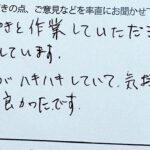 きの点、ご意見などを率直にお聞かせ下
きと作業していただき
しています。
がハキハキしていて、気持
良かったです。